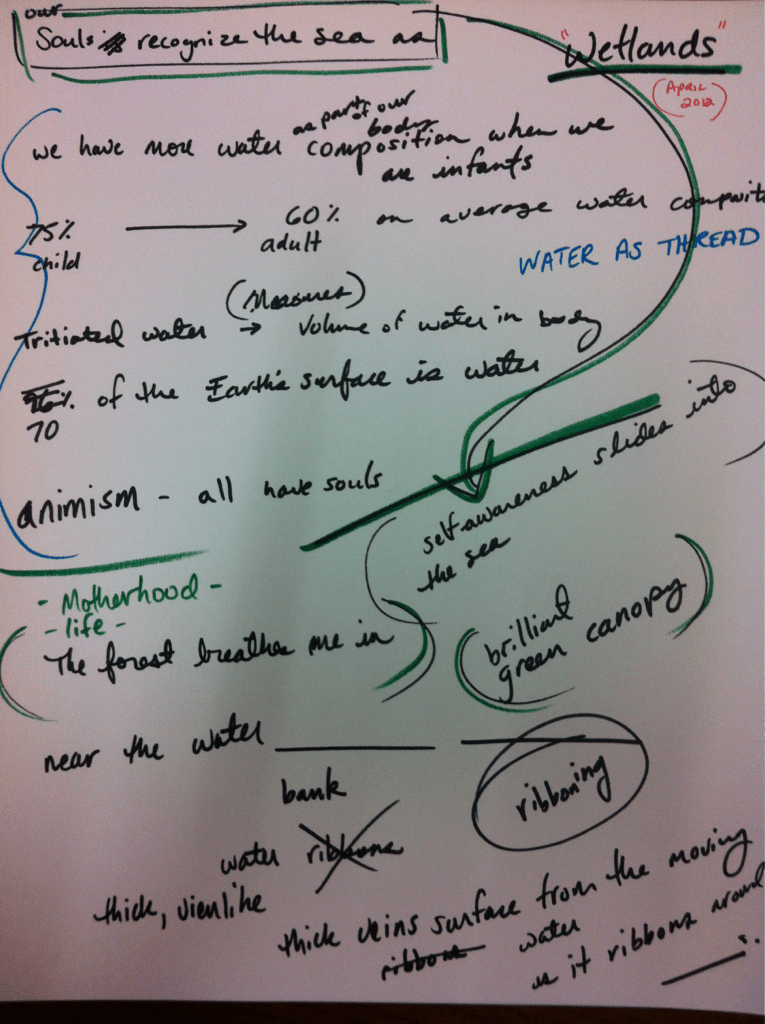 our
Souls recognize the sea as
"Wetlands"
(APRIL
2012)
as part of our
body
we have more water composition when we
are infants
75% → 60% on average water composit
child adult
WATER AS THREAD
(Measures)
Tritiated water → volume of water in body
of the Earth's surface is water
70
animism - all have souls
(self-awareness slides into
the sea)
- Motherhood -
- life -
(The forest breathes me in)
(brilliant
green canopy)
near the water
bank
ribboning
water ribbons
thick, vienlike
thick veins surface from the moving
ribbons water
as it ribbons around